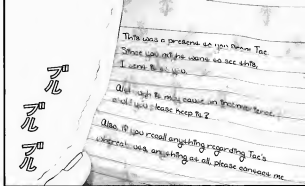 This was a present to you from Tae.
Since you might want to see this,
I sent it to you.
Although it may cause an inconvenience,
could you please keep it?
Also, if you recall anything regarding Tae's
whereabouts, anything at all, please contact me.
ブル
ブル
ブル